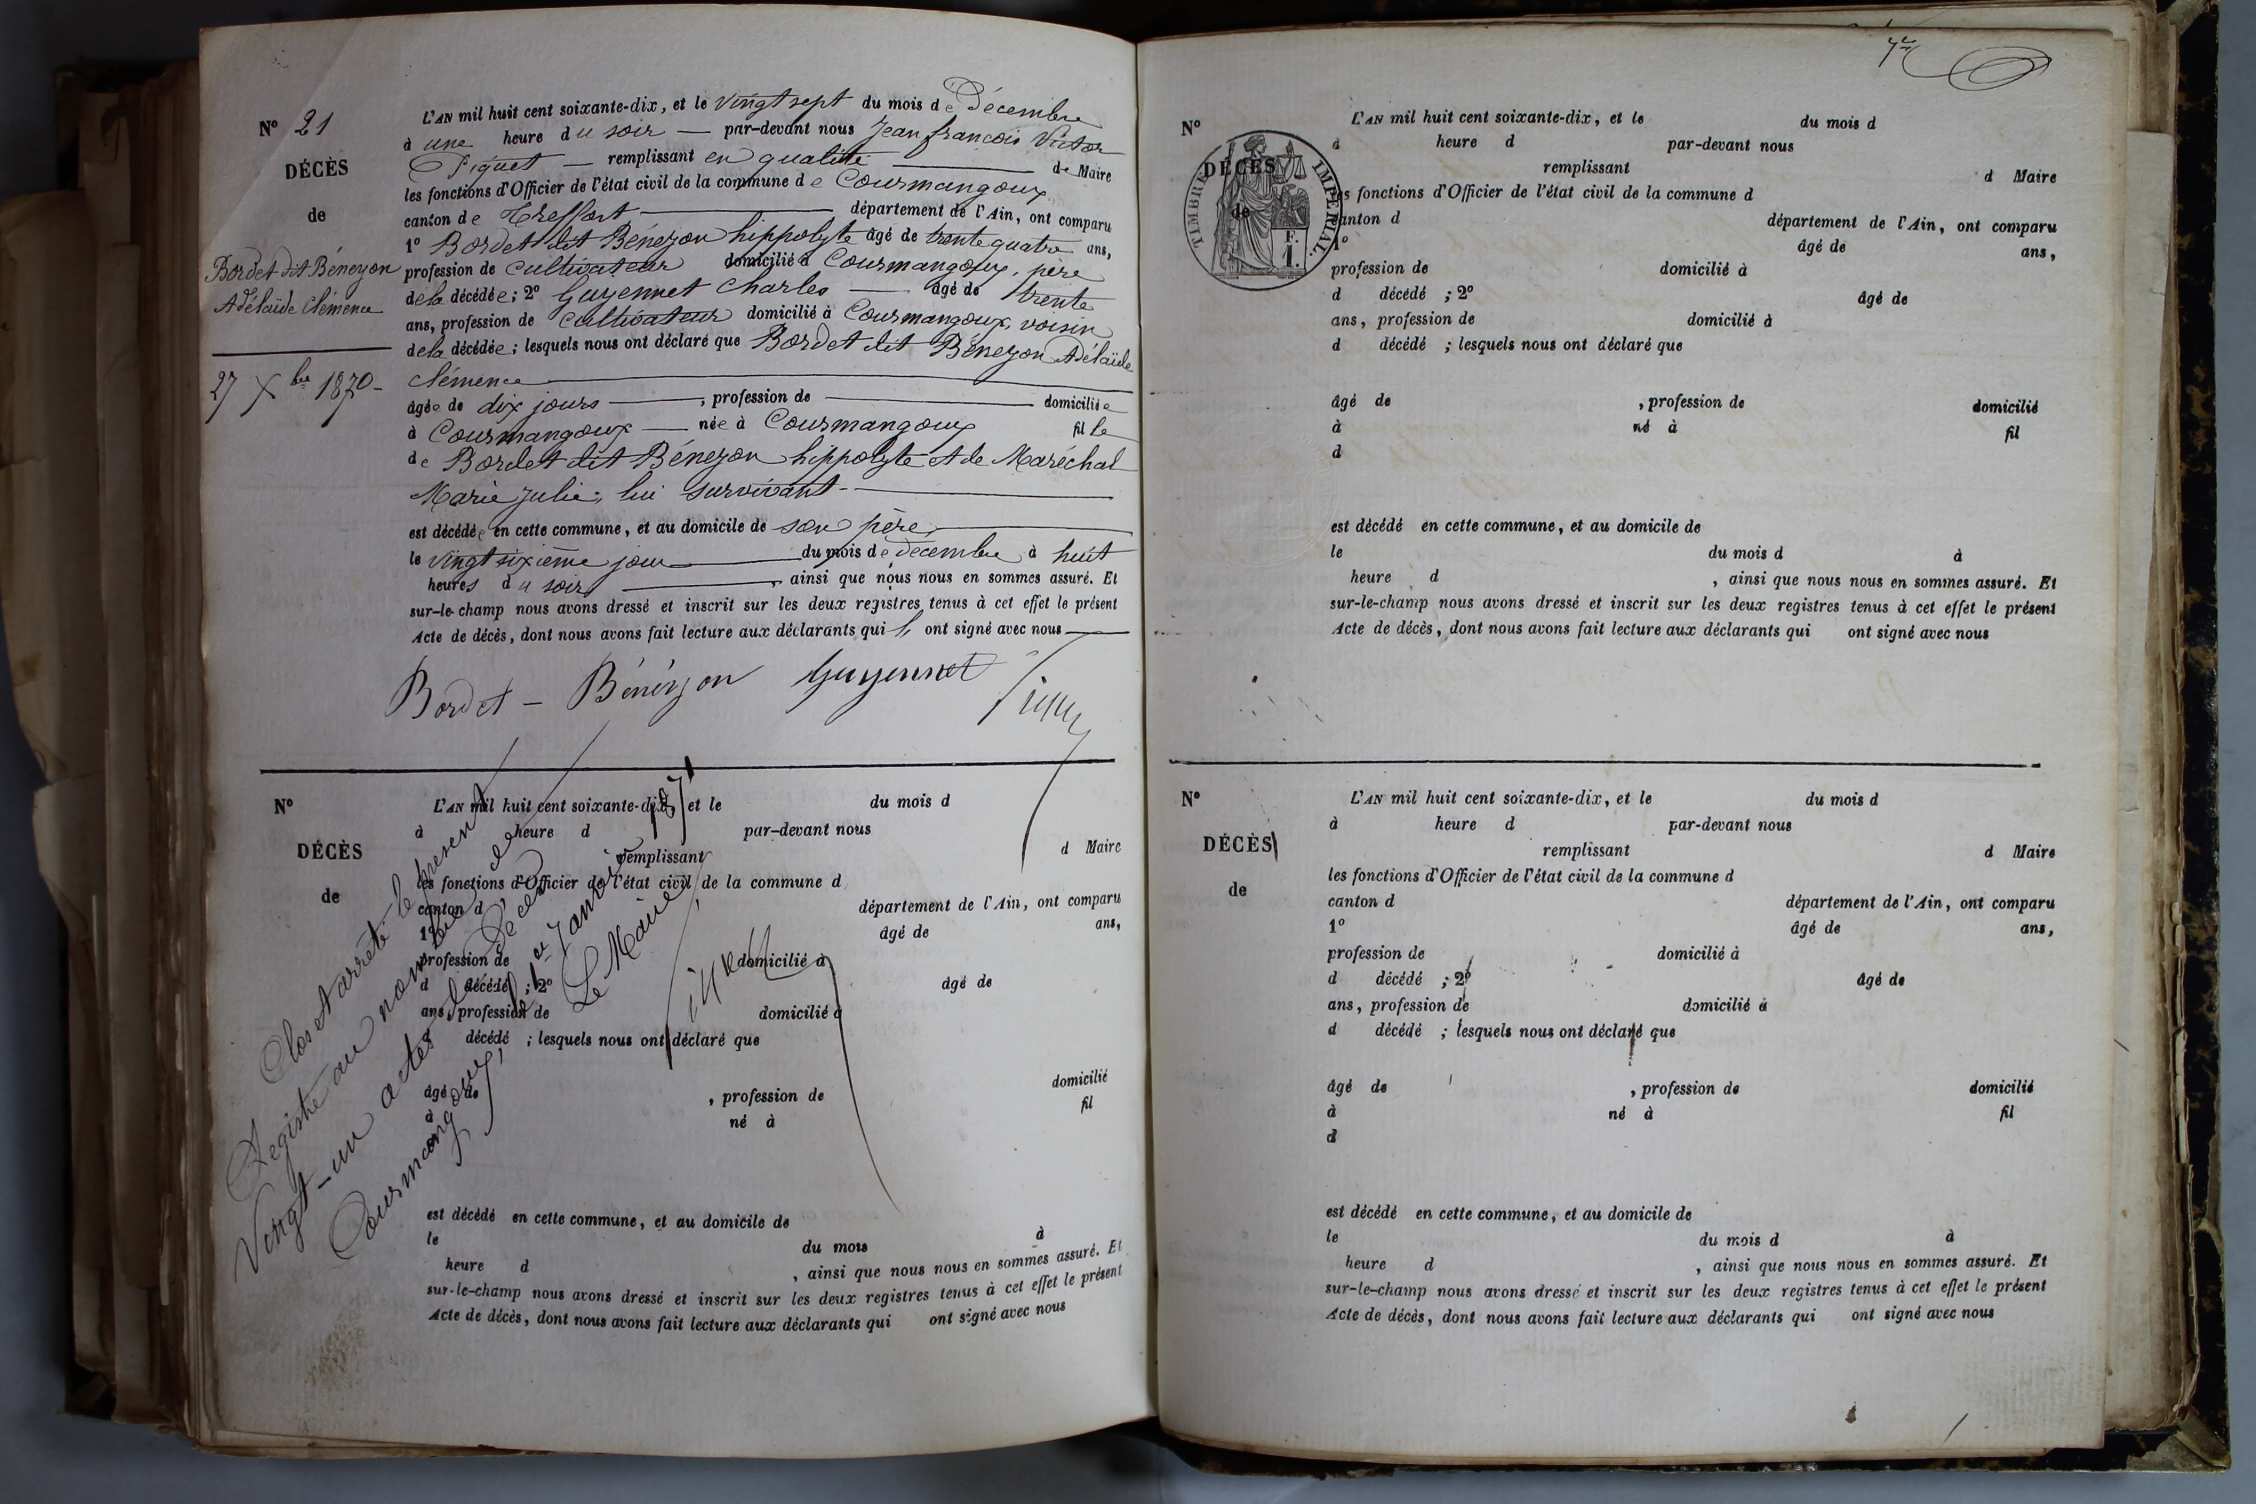 N° 21
DÉCÈS
de
Bordet dit Bénezon
Adélaïde Clémence
27 Xbre 1870
L'AN mil huit cent soixante-dix, et le vingt sept du mois de Décembre
à une heure du soir par-devant nous Jean françois Victor
Piquet remplissant en qualité de Maire
les fonctions d'Officier de l'état civil de la commune de Courmangoux
canton de Treffort département de l'Ain, ont comparu
1° Bordet dit Bénezon hippolyte âgé de trente quatre ans,
profession de cultivateur domicilié à Courmangoux, père
de la décédée ; 2° Guyennet Charles âgé de trente
ans, profession de cultivateur domicilié à Courmangoux, voisin
de la décédée ; lesquels nous ont déclaré que Bordet dit Bénezon Adélaïde
Clémence
âgée de dix jours , profession de domiciliée
à Courmangoux née à Courmangoux fille
de Bordet dit Bénezon hippolyte et de Maréchal
Marie Julie, lui survivant
est décédée en cette commune, et au domicile de son père,
le vingt sixième jour du mois de décembre à huit
heures du soir , ainsi que nous nous en sommes assuré. Et
sur-le-champ nous avons dressé et inscrit sur les deux registres tenus à cet effet le présent
Acte de décès, dont nous avons fait lecture aux déclarants qui ont signé avec nous
Bordet - Bénézon Guyennet
N°
DÉCÈS
de
L'AN mil huit cent soixante-dix, et le du mois d
à heure d par-devant nous
remplissant d Maire
les fonctions d'Officier de l'état civil de la commune d
canton d département de l'Ain, ont comparu
1° âgé de ans,
profession de domicilié à
d décédé ; 2° âgé de
ans, profession de domicilié à
d décédé ; lesquels nous ont déclaré que
âgé de , profession de domicilié
à né à fil
est décédé en cette commune, et au domicile de
le du mois à
heure d , ainsi que nous nous en sommes assuré. Et
sur-le-champ nous avons dressé et inscrit sur les deux registres tenus à cet effet le présent
Acte de décès, dont nous avons fait lecture aux déclarants qui ont signé avec nous
Clos et arrêté le présent
Registre au nombre de
Vingt-un actes de Décès
Courmangoux, le 1er Janvier 1871
Le Maire
N°
DÉCÈS
de
TIMBRE IMPÉRIAL
F.
1.
L'AN mil huit cent soixante-dix, et le du mois d
à heure d par-devant nous
remplissant d Maire
les fonctions d'Officier de l'état civil de la commune d
canton d département de l'Ain, ont comparu
1° âgé de ans,
profession de domicilié à
d décédé ; 2° âgé de
ans, profession de domicilié à
d décédé ; lesquels nous ont déclaré que
âgé de , profession de domicilié
à né à fil
d
est décédé en cette commune, et au domicile de
le du mois d à
heure d , ainsi que nous nous en sommes assuré. Et
sur-le-champ nous avons dressé et inscrit sur les deux registres tenus à cet effet le présent
Acte de décès, dont nous avons fait lecture aux déclarants qui ont signé avec nous
N°
DÉCÈS
de
L'AN mil huit cent soixante-dix, et le du mois d
à heure d par-devant nous
remplissant d Maire
les fonctions d'Officier de l'état civil de la commune d
canton d département de l'Ain, ont comparu
1° âgé de ans,
profession de domicilié à
d décédé ; 2° âgé de
ans, profession de domicilié à
d décédé ; lesquels nous ont déclaré que
âgé de , profession de domicilié
à né à fil
d
est décédé en cette commune, et au domicile de
le du mois d à
heure d , ainsi que nous nous en sommes assuré. Et
sur-le-champ nous avons dressé et inscrit sur les deux registres tenus à cet effet le présent
Acte de décès, dont nous avons fait lecture aux déclarants qui ont signé avec nous